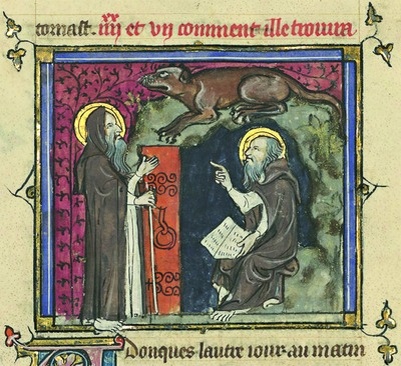 tornast. iiijˣˣ et vij comment il le trouva
Donques lautre iour au matin